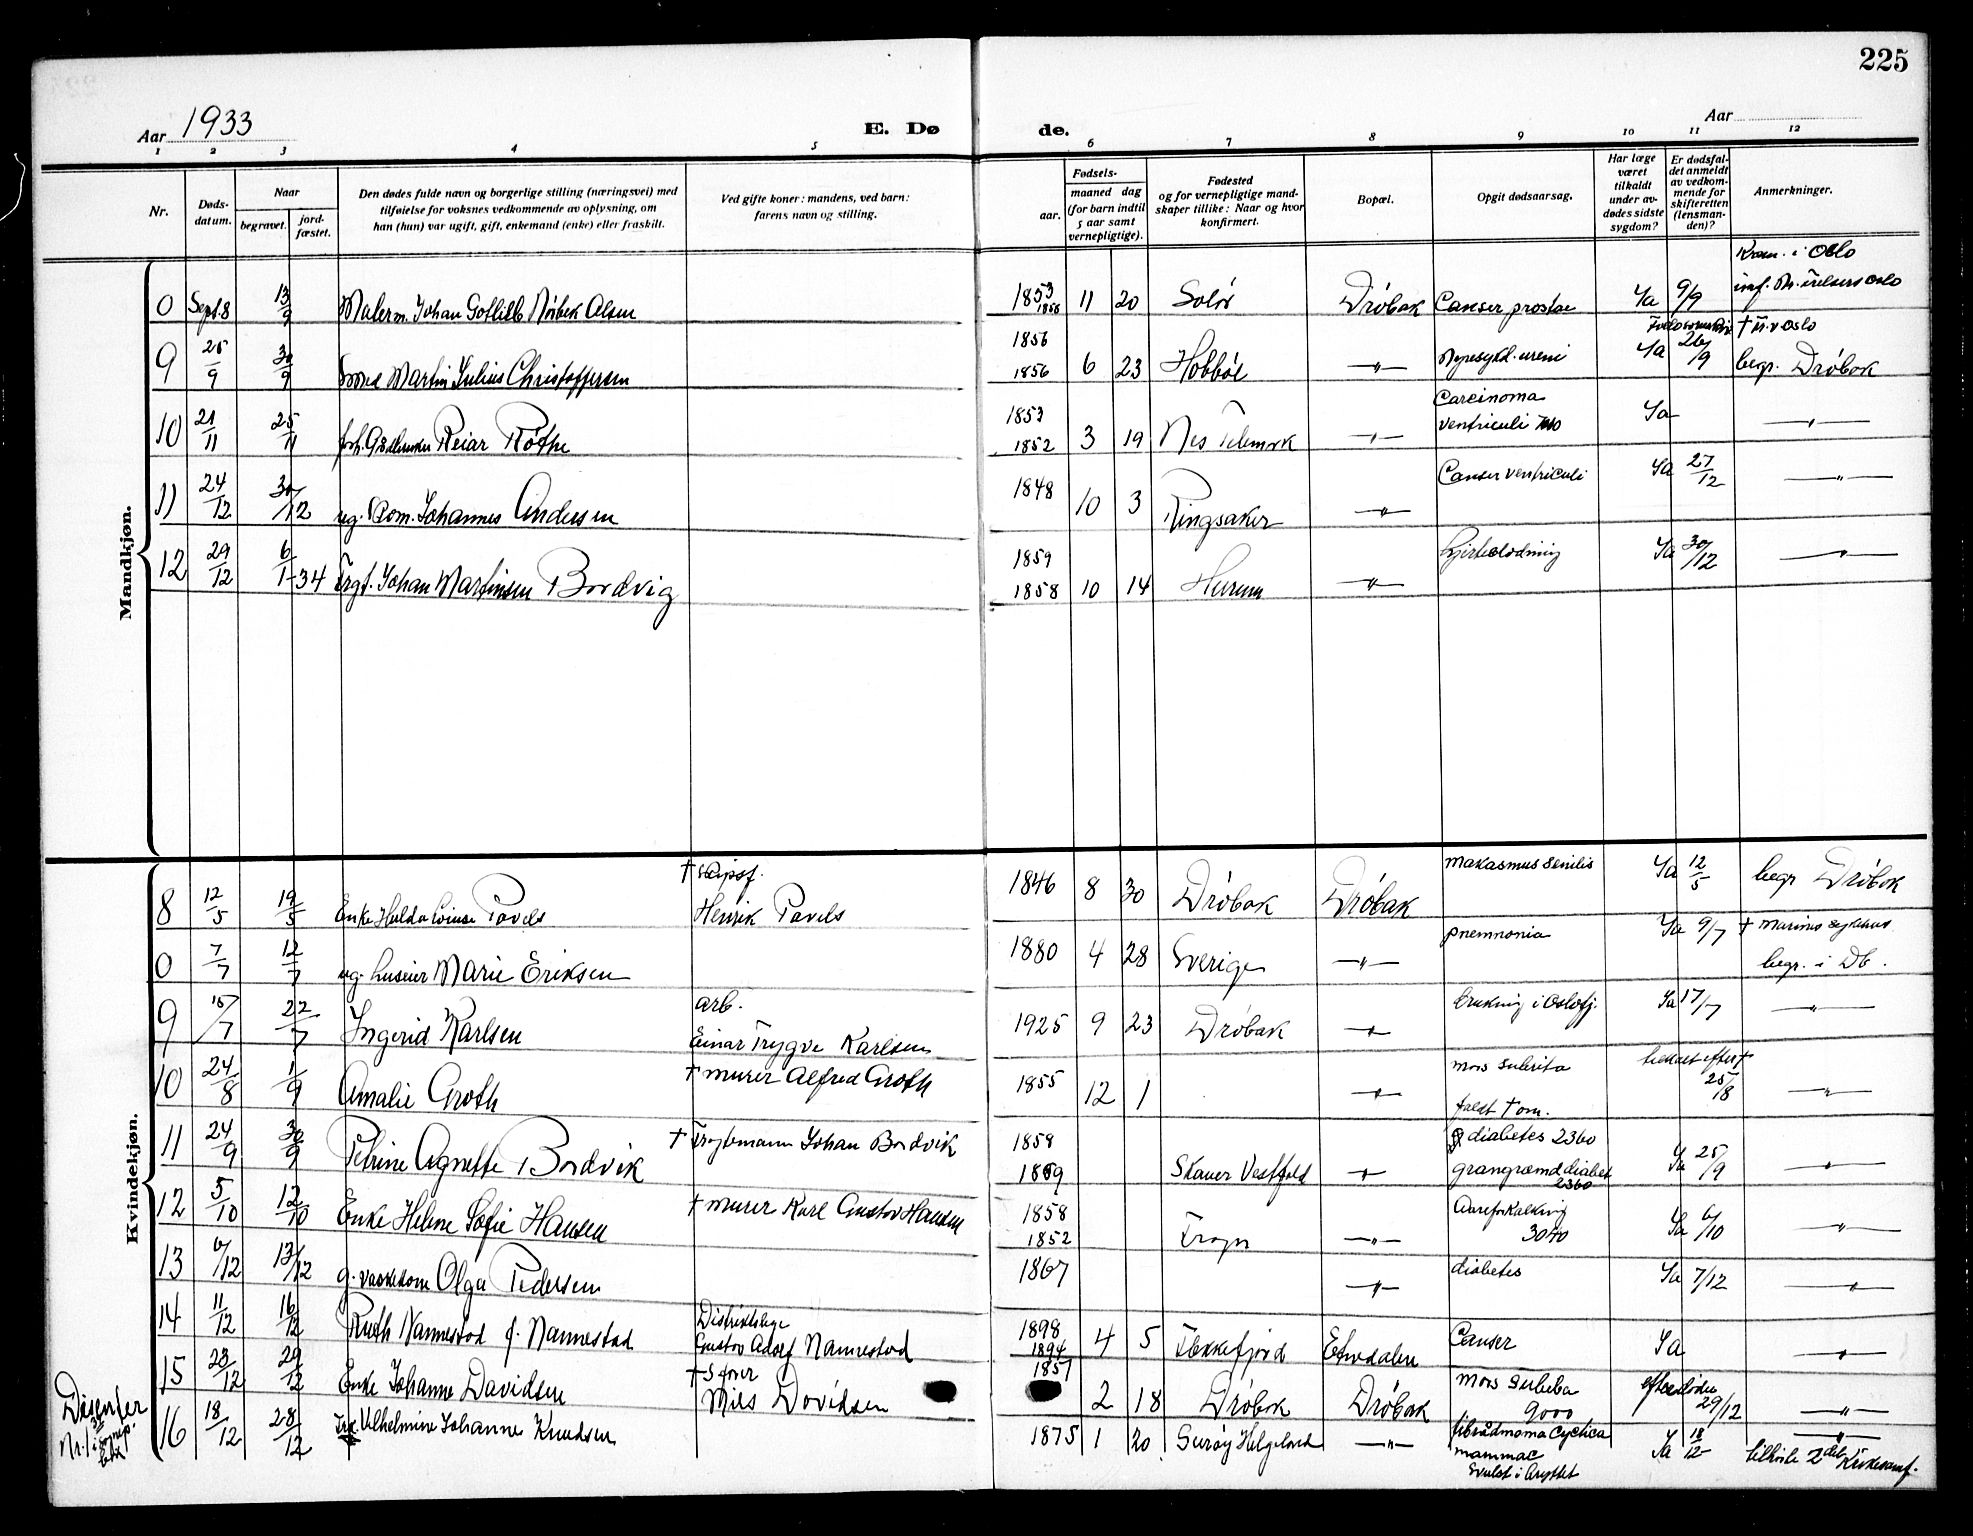 225
Aar 1933
E. Dø
de.
Aar
1 2 3 4 5 6 7 8 9 10 11 12
Nr.
Døds-
datum.
Naar
begravet.
jord-
fæstet.
Den dødes fulde navn og borgerlige stilling (næringsvei) med
tilføielse for voksnes vedkommende av oplysning, om
han (hun) var ugift, gift, enkemand (enke) eller fraskilt.
Ved gifte koner: mandens, ved barn:
farens navn og stilling.
Fødsels-
aar.
maaned dag
(for barn indtil
5 aar samt
vernepligtige).
Fødested
og for vernepligtige mand-
skaper tillike: Naar og hvor
konfirmert.
Bopæl.
Opgit dødsaarsag.
Har læge
været
tilkaldt
under av-
dødes sidste
sygdom?
Er dødsfal-
det anmeldt
av vedkom-
mende for
skifteretten
(lensman-
den)?
Anmerkninger.
Mandkjøn.
Krem. i Oslo
0 Sept. 8 13/9 Malerm. Johan Gotlieb Nörbek Olsen 1853 1856 11 20 Solör Dröbak Canser prostae Ja 9/9
9 25/9 30/9 Smed Martin Julius Christoffersen 1856 1856 6 23 Hobböl —"— Nyresykd. uremi Ja 26/9 begr. Dröbak
10 21/11 25/11 Reiar Röthe 1853 1852 3 19 Nes Telemark —"— Carcinoma
ventriculi Ja —"—
11 24/12 30/12 ug. Johannes Andersen 1848 10 3 Ringsaker —"— Canser ventriculi Ja 27/12 —"—
12 29/12 6/1-34 Johan Martinsen Bordvig 1859 1858 10 14 Hurum —"— Ja 30/12 —"—
Kvindekjøn.
8 12/5 19/5 Enke Hulda Lovise Pavels † skipsf.
Henrik Pavels 1846 8 30 Dröbak Dröbak Makasmus senilis Ja 12/5 begr Dröbak
0 7/7 12/7 ug. Marie Eriksen 1880 4 28 Sverige —"— pnemnonia Ja 9/7 † Marines sykehus
begr. i Db.
9 15/7 22/7 Ingerid Karlsen arb.
Einar Trygve Karlsen 1925 9 23 Dröbak —"— Drukning i Oslofj. Ja 17/7 —"—
10 24/8 1/9 Amalie Groth † murer Alfred Groth 1855 12 1 —"— Mors subita
faldt om. 25/8 —"—
11 24/9 30/9 Petrine Agnette Bordvik † Johan Bordvik 1859 1859 Vestfold —"— diabetes 2360
2360 Ja 25/9 —"—
12 5/10 12/10 Enke Helene Sofie Hansen † murer Karl Gustav Hansen 1858 1852 Frogn —"— Aareforkalkning
3040 Ja 6/10 —"—
13 6/12 13/12 g. Olga Pedersen 1867 —"— diabetes Ja 7/12 —"—
14 11/12 16/12 Ruth Nannestad f. Nannestad Distriktslege
Gustav Adolf Nannestad 1898 1894 4 5 Flekkefjord Canser Ja —"—
15 23/12 29/12 Enke Johanne Davidsen
Nils Davidsen 1851 2 18 Dröbak Dröbak Mors subita
9000 29/12 —"—
16 18/12 28/12 Vilhelmine Johanne Knudsen 1875 1 20 Helgeland —"— cystica
mammae
Svulst i brystet Ja 18/12 —"—
Dissenter
Nr. 1